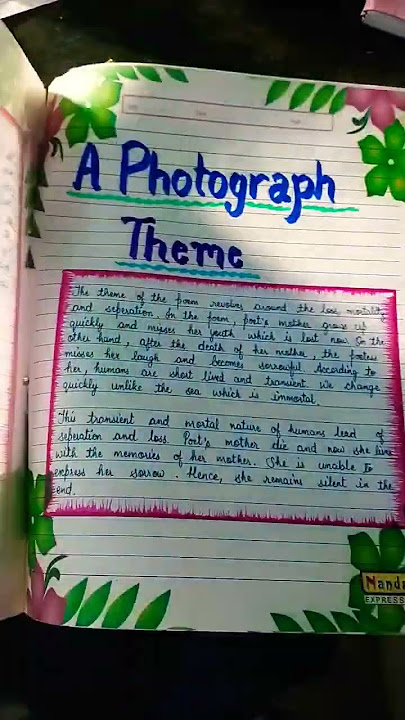 A Photograph
Theme
The theme of the poem revolves around the loss, mortality
and seperation. In the poem, poet's mother grows up
quickly and misses her youth which is lost now. On the
other hand, after the death of her mother, the poetess
misses her laugh and becomes sorrowful. According to
her, humans are short lived and transient. We change
quickly unlike the sea which is immortal.
This transient and mortal nature of humans lead of
seperation and loss. Poet's mother die and now she live
with the memories of her mother. She is unable to
express her sorrow. Hence, she remains silent in the
end.
EXPRESS